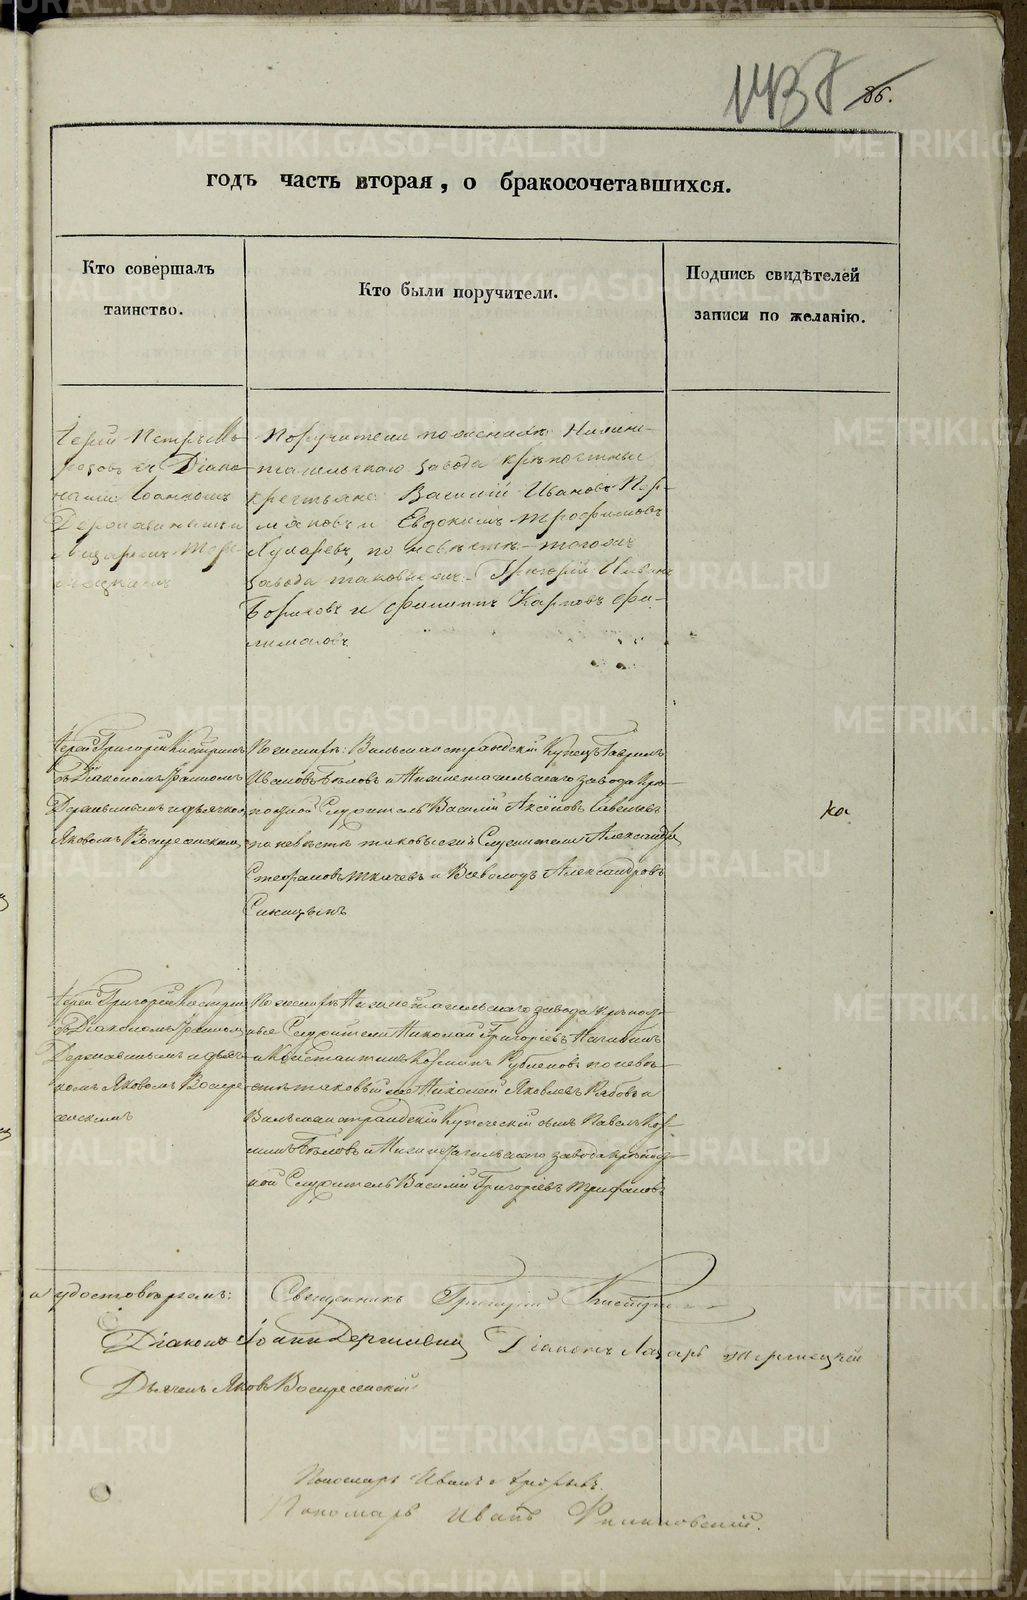 1437 86.
годъ часть вторая, о бракосочетавшихся.
Кто совершалъ
таинство.
Кто были поручители.
Подпись свидѣтелей
записи по желанію.
Іерей Петръ Мо-
розовъ съ Діако-
нами Іоанномъ
Державинымъ и
Лазаремъ
Поручители по женихѣ: Нижне-
тагильскаго завода крѣпостные
крестьяне Василій Ивановъ Пер-
мяковъ и Евдокимъ Трофимовъ
по невѣстѣ того же
завода таковые же: Григорій Ивановъ
и Филиппъ Карповъ Фи-
лимоновъ.
Іерей Григорій Кастринъ
съ Діакономъ Іоанномъ
Державинымъ и дьячкомъ
Яковомъ Воскресенскимъ
По женихѣ: Вильманстрандскій Купецъ Гаврилъ
Ивановъ Бѣловъ и Нижнетагильскаго завода крѣ-
постной Служитель Василій Аксёновъ Савельевъ
по невѣстѣ таковые же Служители Александръ
Стефановъ Ткачевъ и Всеволодъ Александровъ
Синицынъ
Іерей Григорій Кастринъ
съ Діакономъ Іоанномъ
Державинымъ и дьяч-
комъ Яковомъ Воскре-
сенскимъ
По женихѣ Нижнетагильскаго завода крѣпост-
ные Служители Николай Григорьевъ
и Константинъ Козминъ Рублевовъ по невѣ-
стѣ таковый же Николай Яковлевъ Рябовъ и
Вильманстрандскій Купеческій сынъ Павелъ Коз-
минъ Бѣловъ и Нижнетагильскаго завода крѣпост-
ной Служитель Василій Григорьевъ Трифановъ
и удостовѣряемъ:
Священникъ Григорій Кастринъ
Діаконъ Іоаннъ Державинъ Діаконъ Лазарь
Дьячекъ Яковъ Воскресенскій
Пономарь Иванъ
Пономарь Иванъ
METRIKI.GASO-URAL.RU